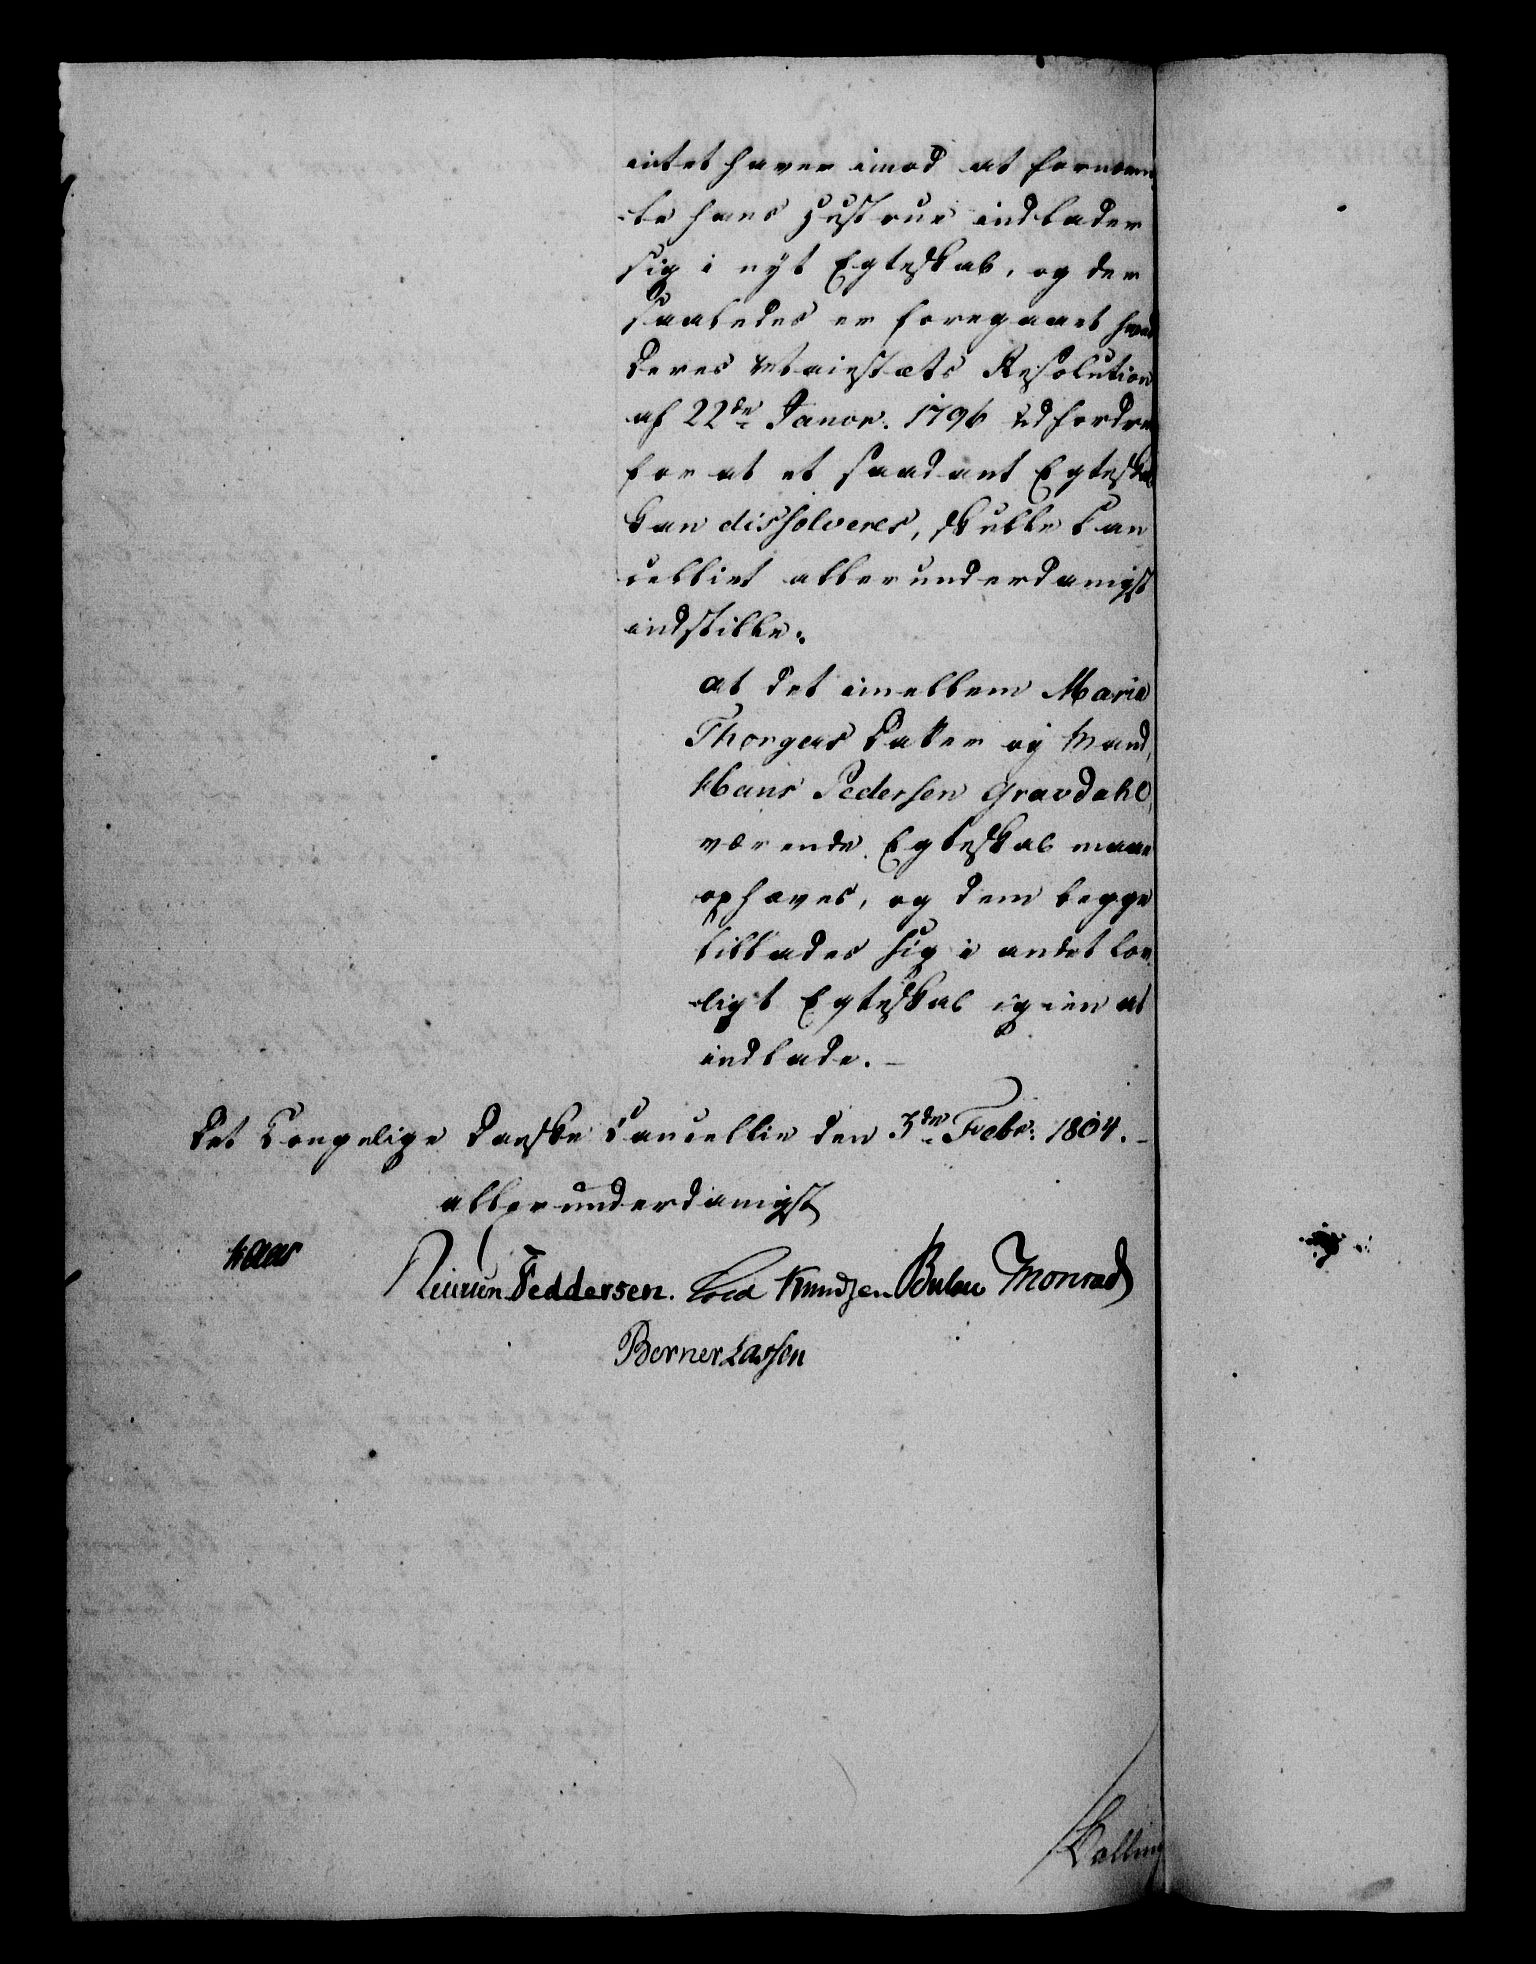 intet haver imod at fornævn¬
te hans Hustrue indlader
sig i nyt Egteskab, og der
saaledes er foregaaet hvad
Deres Maiestæts Resolution
af 22de Janor. 1796 udfordrer
for at et saadant Egteskab
kan dissolveres, skulle Can
celliet allerunderdanigst
indstille:
at det imellem Marie
Thorgers Datter og Mand,
Hans Pedersen Gravdahl,
værende Egteskab maae
ophæves, og dem begge
tillades sig i andet lov
ligt Egteskab igien at
indlade. –
Det Kongelige Danske Cancellie den 3de Febr: 1804. –
allerunderdanigst
Kaas
Feddersen. Knudsen Bülow Monrad
Berner Lassen
Collin